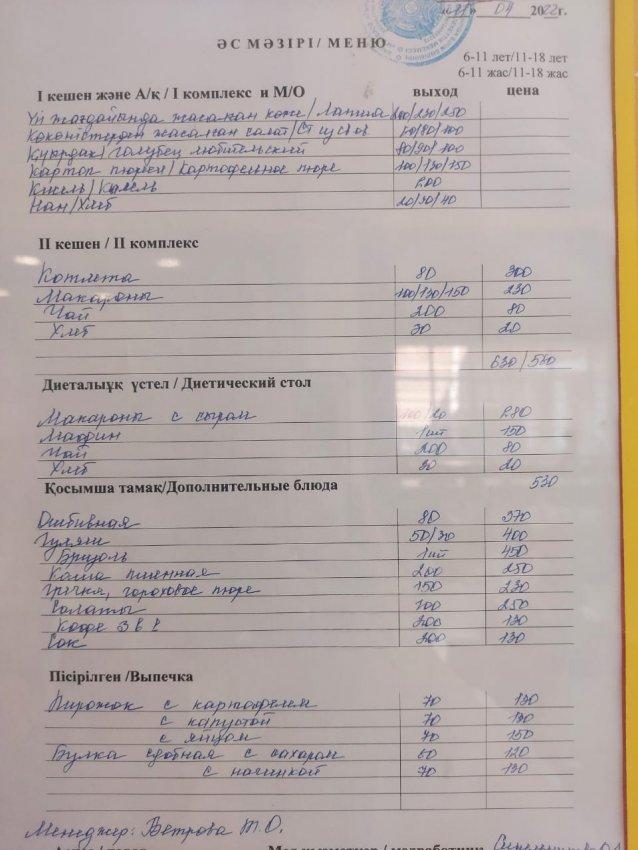 04 2022г.
ӘС МӘЗІРІ / МЕНЮ
6-11 лет/11-18 лет
6-11 жас/11-18 жас
І кешен және А/қ / І комплекс и М/О выход цена
Үй жағдайында жасалған көже / Лапша 200/230/250
Көкөністерден жасалған салат / 60/80/100
Қуырдақ / Голубец любительский 80/90/100
Картоп пюресі / Картофельное пюре 100/130/150
Кисель / Кисель 200
Нан / Хлеб 20/30/40
ІІ кешен / ІІ комплекс
Котлета 80 300
Макароны 100/130/150 230
Чай 200 80
Хлеб 30 20
630/560
Диеталыұқ үстел / Диетический стол
Макароны с сыром 100/20 280
Маффин 1шт 150
Чай 200 80
Хлеб 30 20
Қосымша тамақ/Дополнительные блюда 530
Отбивная 80 370
Гуляш 50/30 400
Бризоль 1шт 450
Каша пшенная 200 250
Гречка, гороховое пюре 150 230
Салаты 100 250
Кофе 3 в 1 200 130
Сок 200 130
Пісірілген /Выпечка
Пирожок с картофелем 70 130
с капустой 70 130
с яйцом 70 150
Булка сдобная с сахаром 60 120
с начинкой 70 130
Менеджер: Ветрова Т.О.